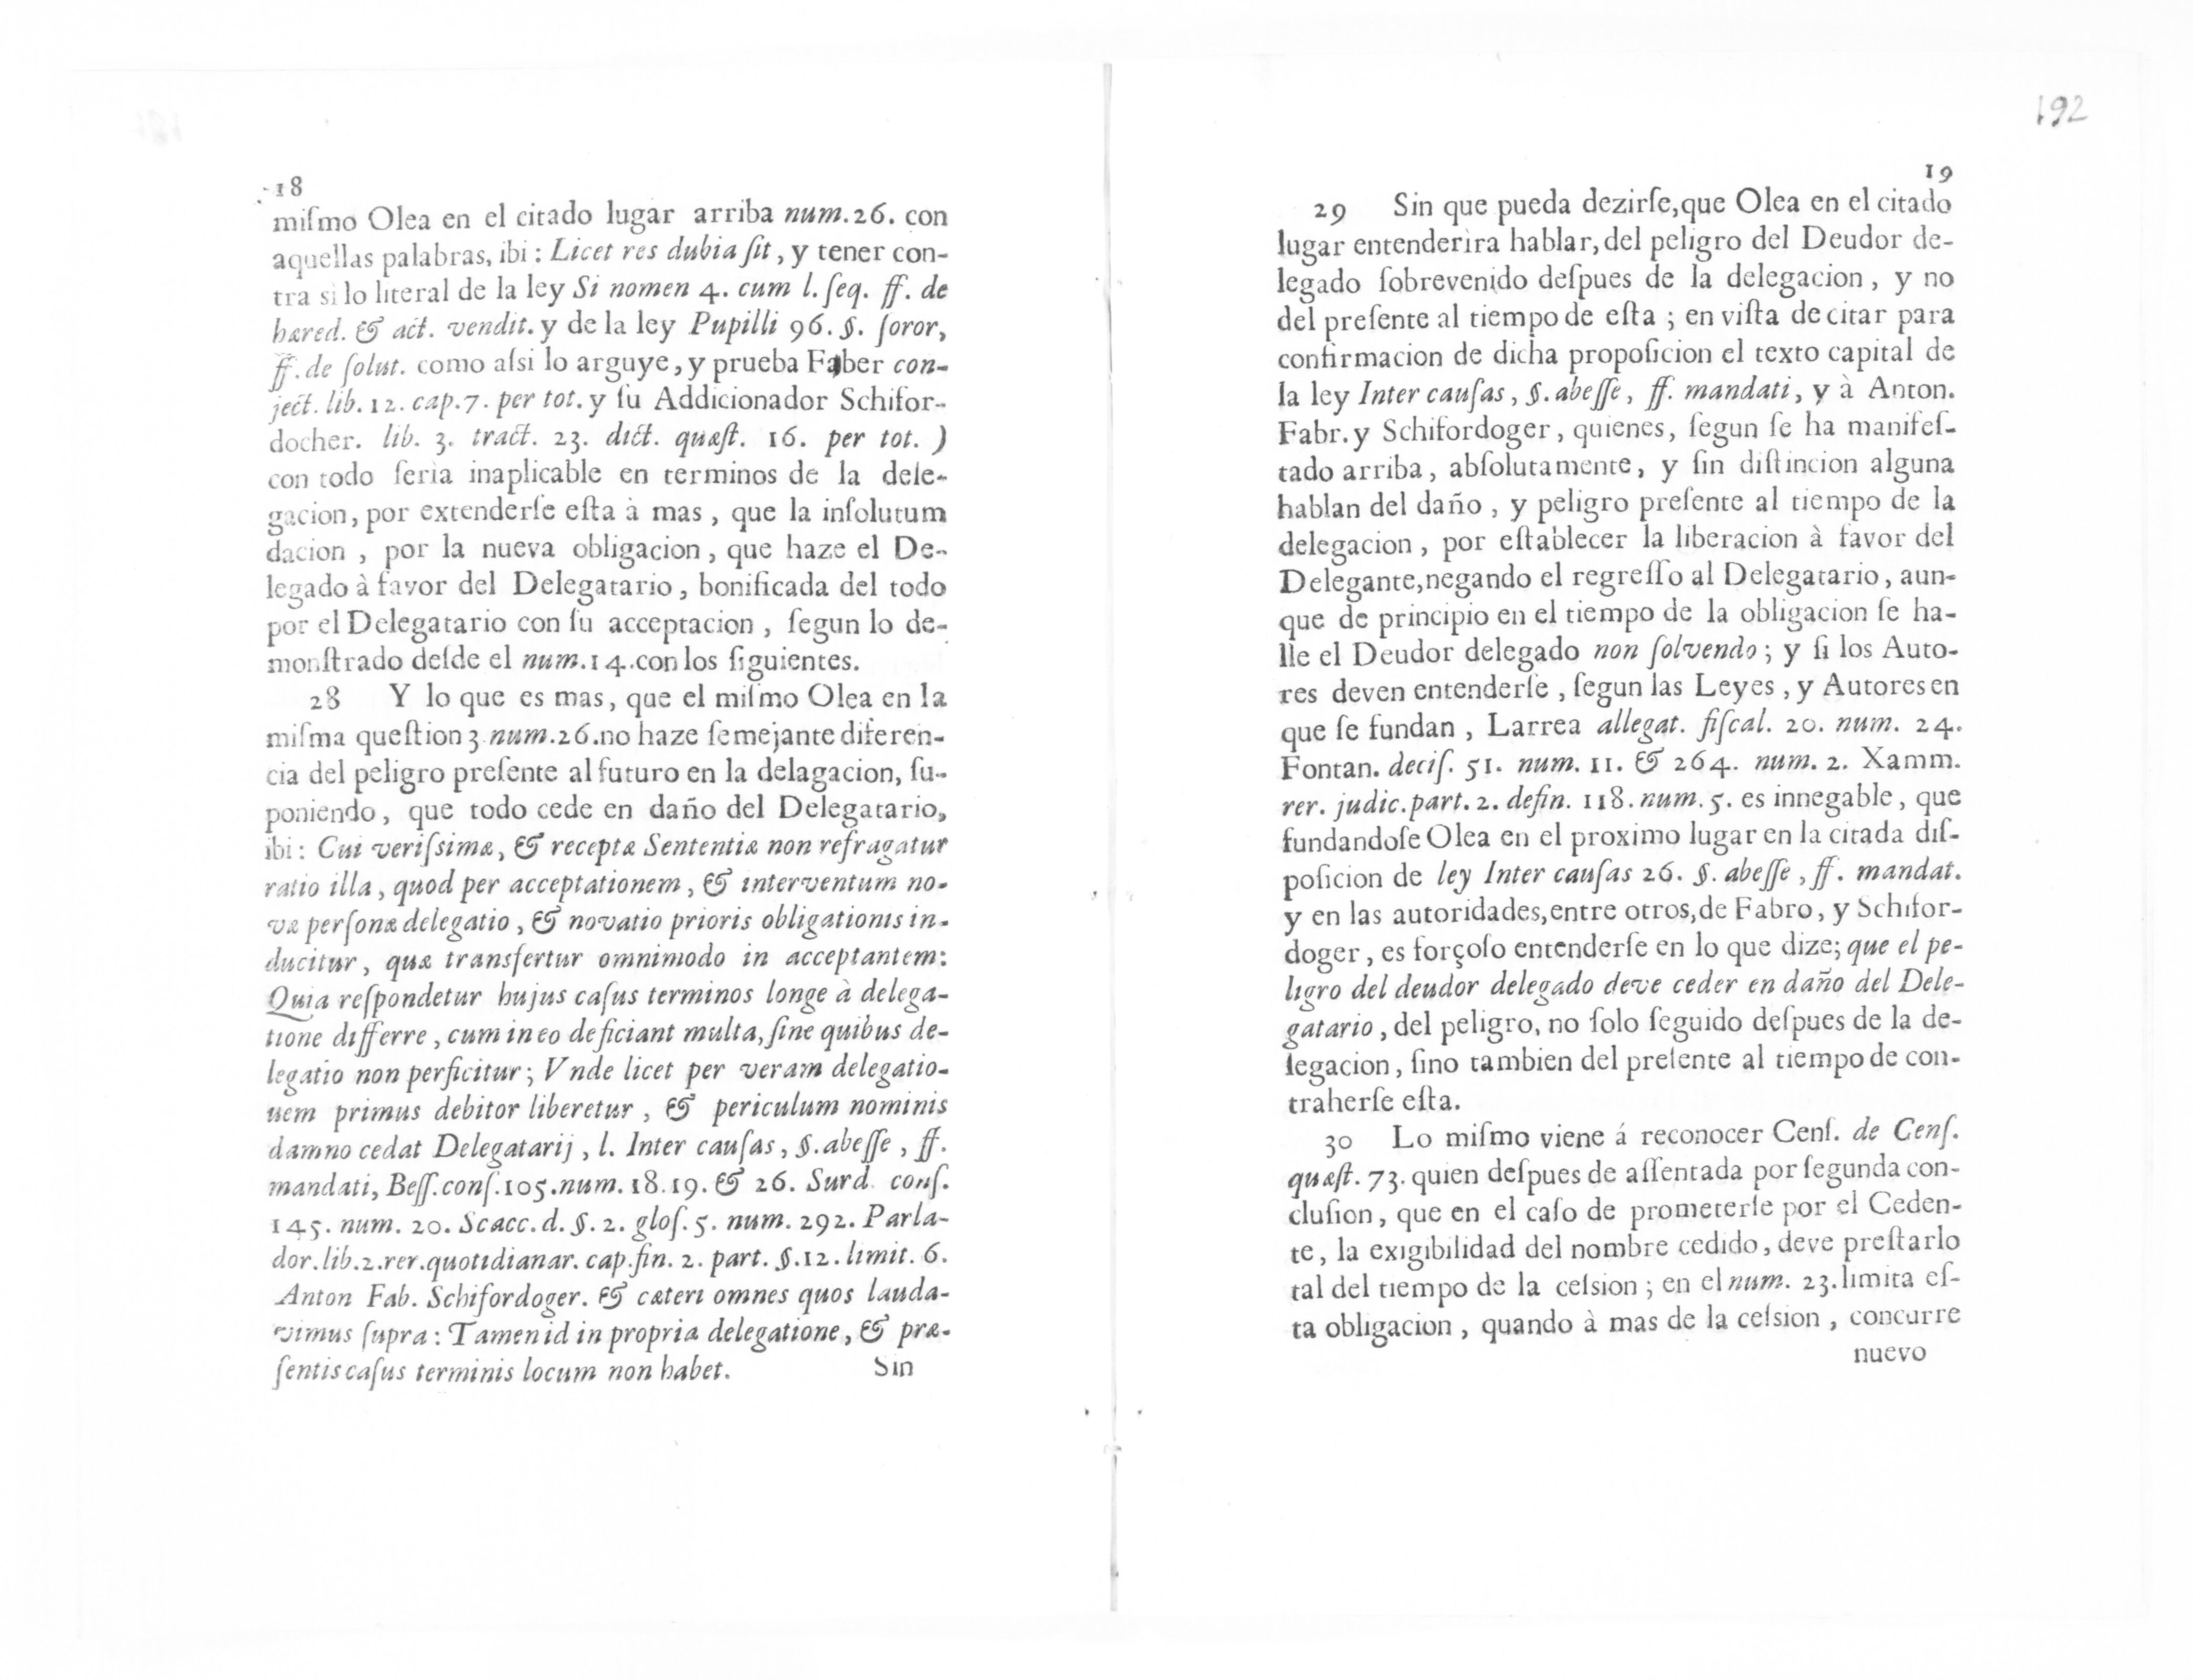 18
miſmo Olea en el citado lugar arriba num.26. con
aquellas palabras, ibi : Licet res dubia ſit, y tener con-
tra si lo literal de la ley Si nomen 4. cum l. ſeq. ff. de
hæred. & act. vendit. y de la ley Pupilli 96. §. ſoror,
ff. de ſolut. como aſsi lo arguye, y prueba Faber con-
ject. lib. 12. cap.7. per tot. y ſu Addicionador Schifor-
docher. lib. 3. tract. 23. dict. quæſt. 16. per tot. )
con todo ſeria inaplicable en terminos de la dele-
gacion, por extenderſe eſta à mas, que la inſolutum
dacion, por la nueva obligacion, que haze el De-
legado à favor del Delegatario, bonificada del todo
por el Delegatario con ſu acceptacion, ſegun lo de-
monſtrado deſde el num.14.con los ſiguientes.
28 Y lo que es mas, que el miſmo Olea en la
miſma queſtion 3 num.26.no haze ſemejante diferen-
cia del peligro preſente al futuro en la delagacion, ſu-
poniendo, que todo cede en daño del Delegatario,
ibi : Cui veriſsimæ, & receptæ Sententiæ non refragatur
ratio illa, quod per acceptationem, & interventum no-
væ perſonæ delegatio, & novatio prioris obligationis in-
ducitur, quæ transfertur omnimodo in acceptantem:
Quia reſpondetur hujus caſus terminos longe à delega-
tione differre, cum in eo deficiant multa, ſine quibus de-
legatio non perficitur; Vnde licet per veram delegatio-
nem primus debitor liberetur, & periculum nominis
damno cedat Delegatarij, l. Inter cauſas, §.abeſſe, ff.
mandati, Beſſ.conſ.105.num.18.19.& 26. Surd. conſ.
145. num. 20. Scacc. d. §. 2. gloſ. 5. num. 292. Parla-
dor.lib.2.rer.quotidianar. cap.fin. 2. part. §.12. limit. 6.
Anton Fab. Schifordoger. & cæteri omnes quos lauda-
vimus ſupra : Tamen id in propria delegatione, & præ-
ſentis caſus terminis locum non habet.
Sin
192
19
29 Sin que pueda dezirſe,que Olea en el citado
lugar entenderìra hablar, del peligro del Deudor de-
legado ſobrevenido deſpues de la delegacion, y no
del preſente al tiempo de eſta ; en viſta de citar para
confirmacion de dicha propoſicion el texto capital de
la ley Inter cauſas, §. abeſſe, ff. mandati, y à Anton.
Fabr. y Schifordoger, quienes, ſegun ſe ha manifeſ-
tado arriba, abſolutamente, y ſin diſtincion alguna
hablan del daño, y peligro preſente al tiempo de la
delegacion, por eſtablecer la liberacion à favor del
Delegante,negando el regreſſo al Delegatario, aun-
que de principio en el tiempo de la obligacion ſe ha-
lle el Deudor delegado non ſolvendo ; y ſi los Auto-
res deven entenderſe, ſegun las Leyes, y Autores en
que ſe fundan, Larrea allegat. fiſcal. 20. num. 24.
Fontan. deciſ. 51. num. 11. & 264. num. 2. Xamm.
rer. judic.part. 2. defin. 118. num. 5. es innegable, que
fundandoſe Olea en el proximo lugar en la citada diſ-
poſicion de ley Inter cauſas 26. §. abeſſe, ff. mandat.
y en las autoridades,entre otros,de Fabro, y Schifor-
doger, es forçoſo entenderſe en lo que dize; que el pe-
ligro del deudor delegado deve ceder en daño del Dele-
gatario, del peligro, no ſolo ſeguido deſpues de la de-
legacion, ſino tambien del preſente al tiempo de con-
traherſe eſta.
30 Lo miſmo viene á reconocer Cenſ. de Cenſ.
quæſt. 73. quien deſpues de aſſentada por ſegunda con-
cluſion, que en el caſo de prometerſe por el Ceden-
te, la exigibilidad del nombre cedido, deve preſtarlo
tal del tiempo de la ceſsion ; en el num. 23. limita eſ-
ta obligacion, quando à mas de la ceſsion, concurre
nuevo